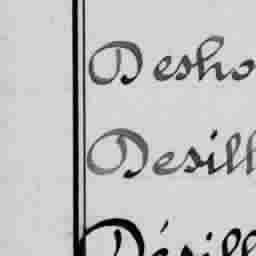 Desho
Desill
Désill